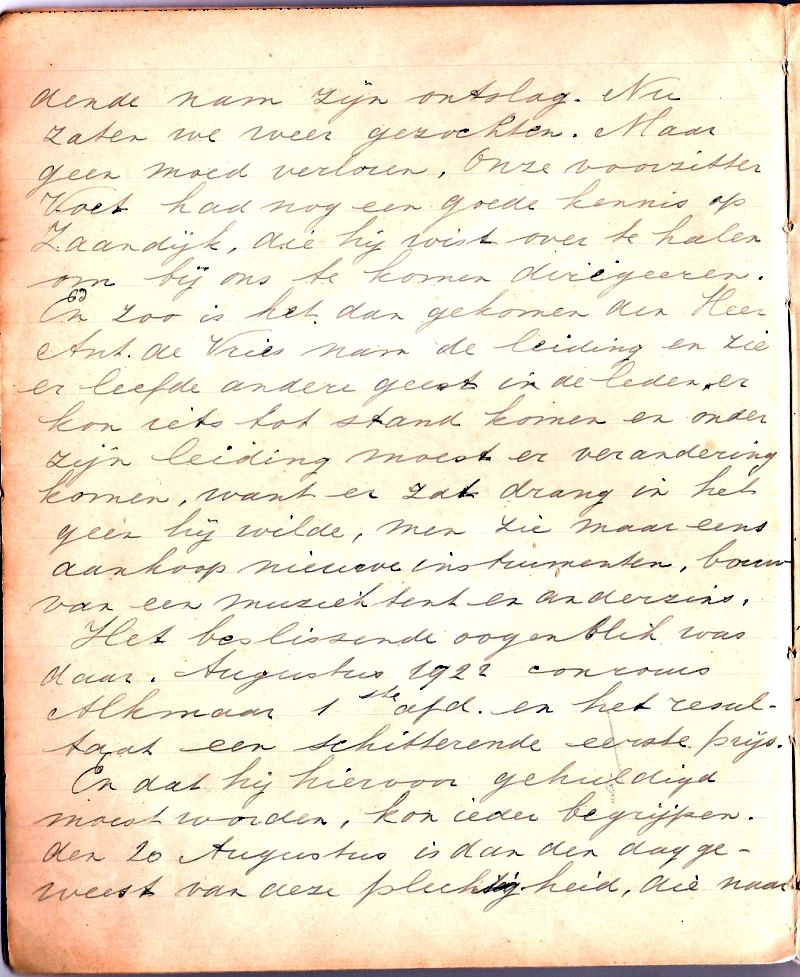 dende nam zijn ontslag. Nu
zaten we weer gezochten. Maar
geen moed verloren, Onze voorzitter
Voet had nog een goede kennis op
Zaandijk, die hij wist over te halen
om bij ons te komen dirigeeren.
En zoo is het dan gekomen den Heer
Ant. de Vries nam de leiding en zie
er leefde andere geest in de leden, er
kon iets tot stand komen en onder
zijn leiding moest er verandering
komen, want er zat drang in het
geen hij wilde, men zie maar eens
aankoop nieuwe instrumenten, bouw
van een muziektent en anderzins.
Het beslissende oogenblik was
daar. Augustus 1922 concours
Alkmaar 1 ste afd. en het resul-
taat een schitterende eerste prijs.
En dat hij hiervoor gehuldigd
moest worden, kon ieder begrijpen.
den 20 Augustus is dan den dag ge-
weest van deze plechtigheid, die naar